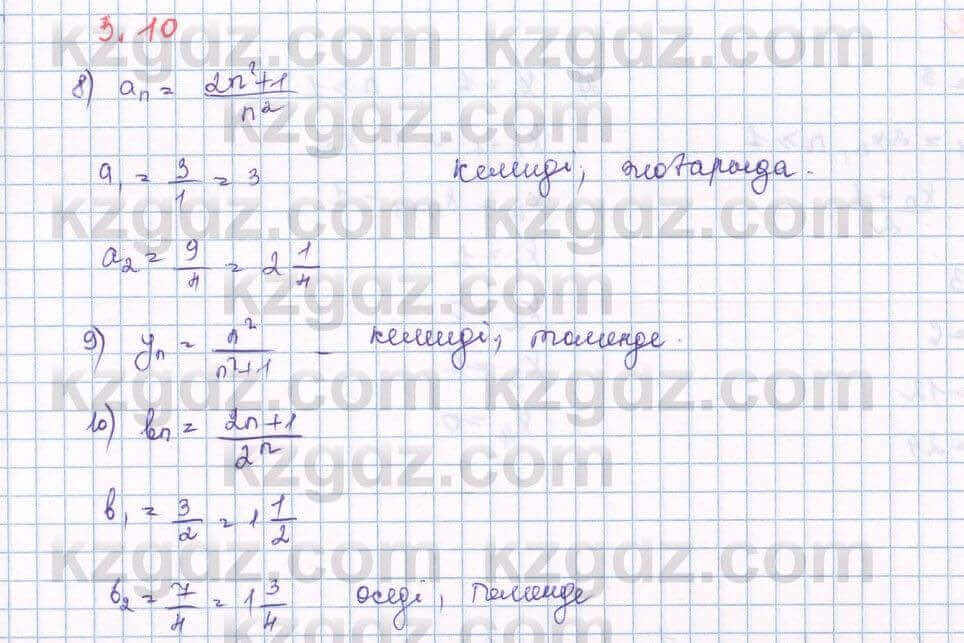 3.10
8) aₙ = (2n²+1)/n²
a₁ = 3/1 = 3 кемиді, жоғарыда.
a₂ = 9/4 = 2 1/4
9) yₙ = n²/(n²+1) – кемиді, төменде.
10) bₙ = (2n+1)/2ⁿ
b₁ = 3/2 = 1 1/2
b₂ = 7/4 = 1 3/4 өседі, төменде
kzgdz.com